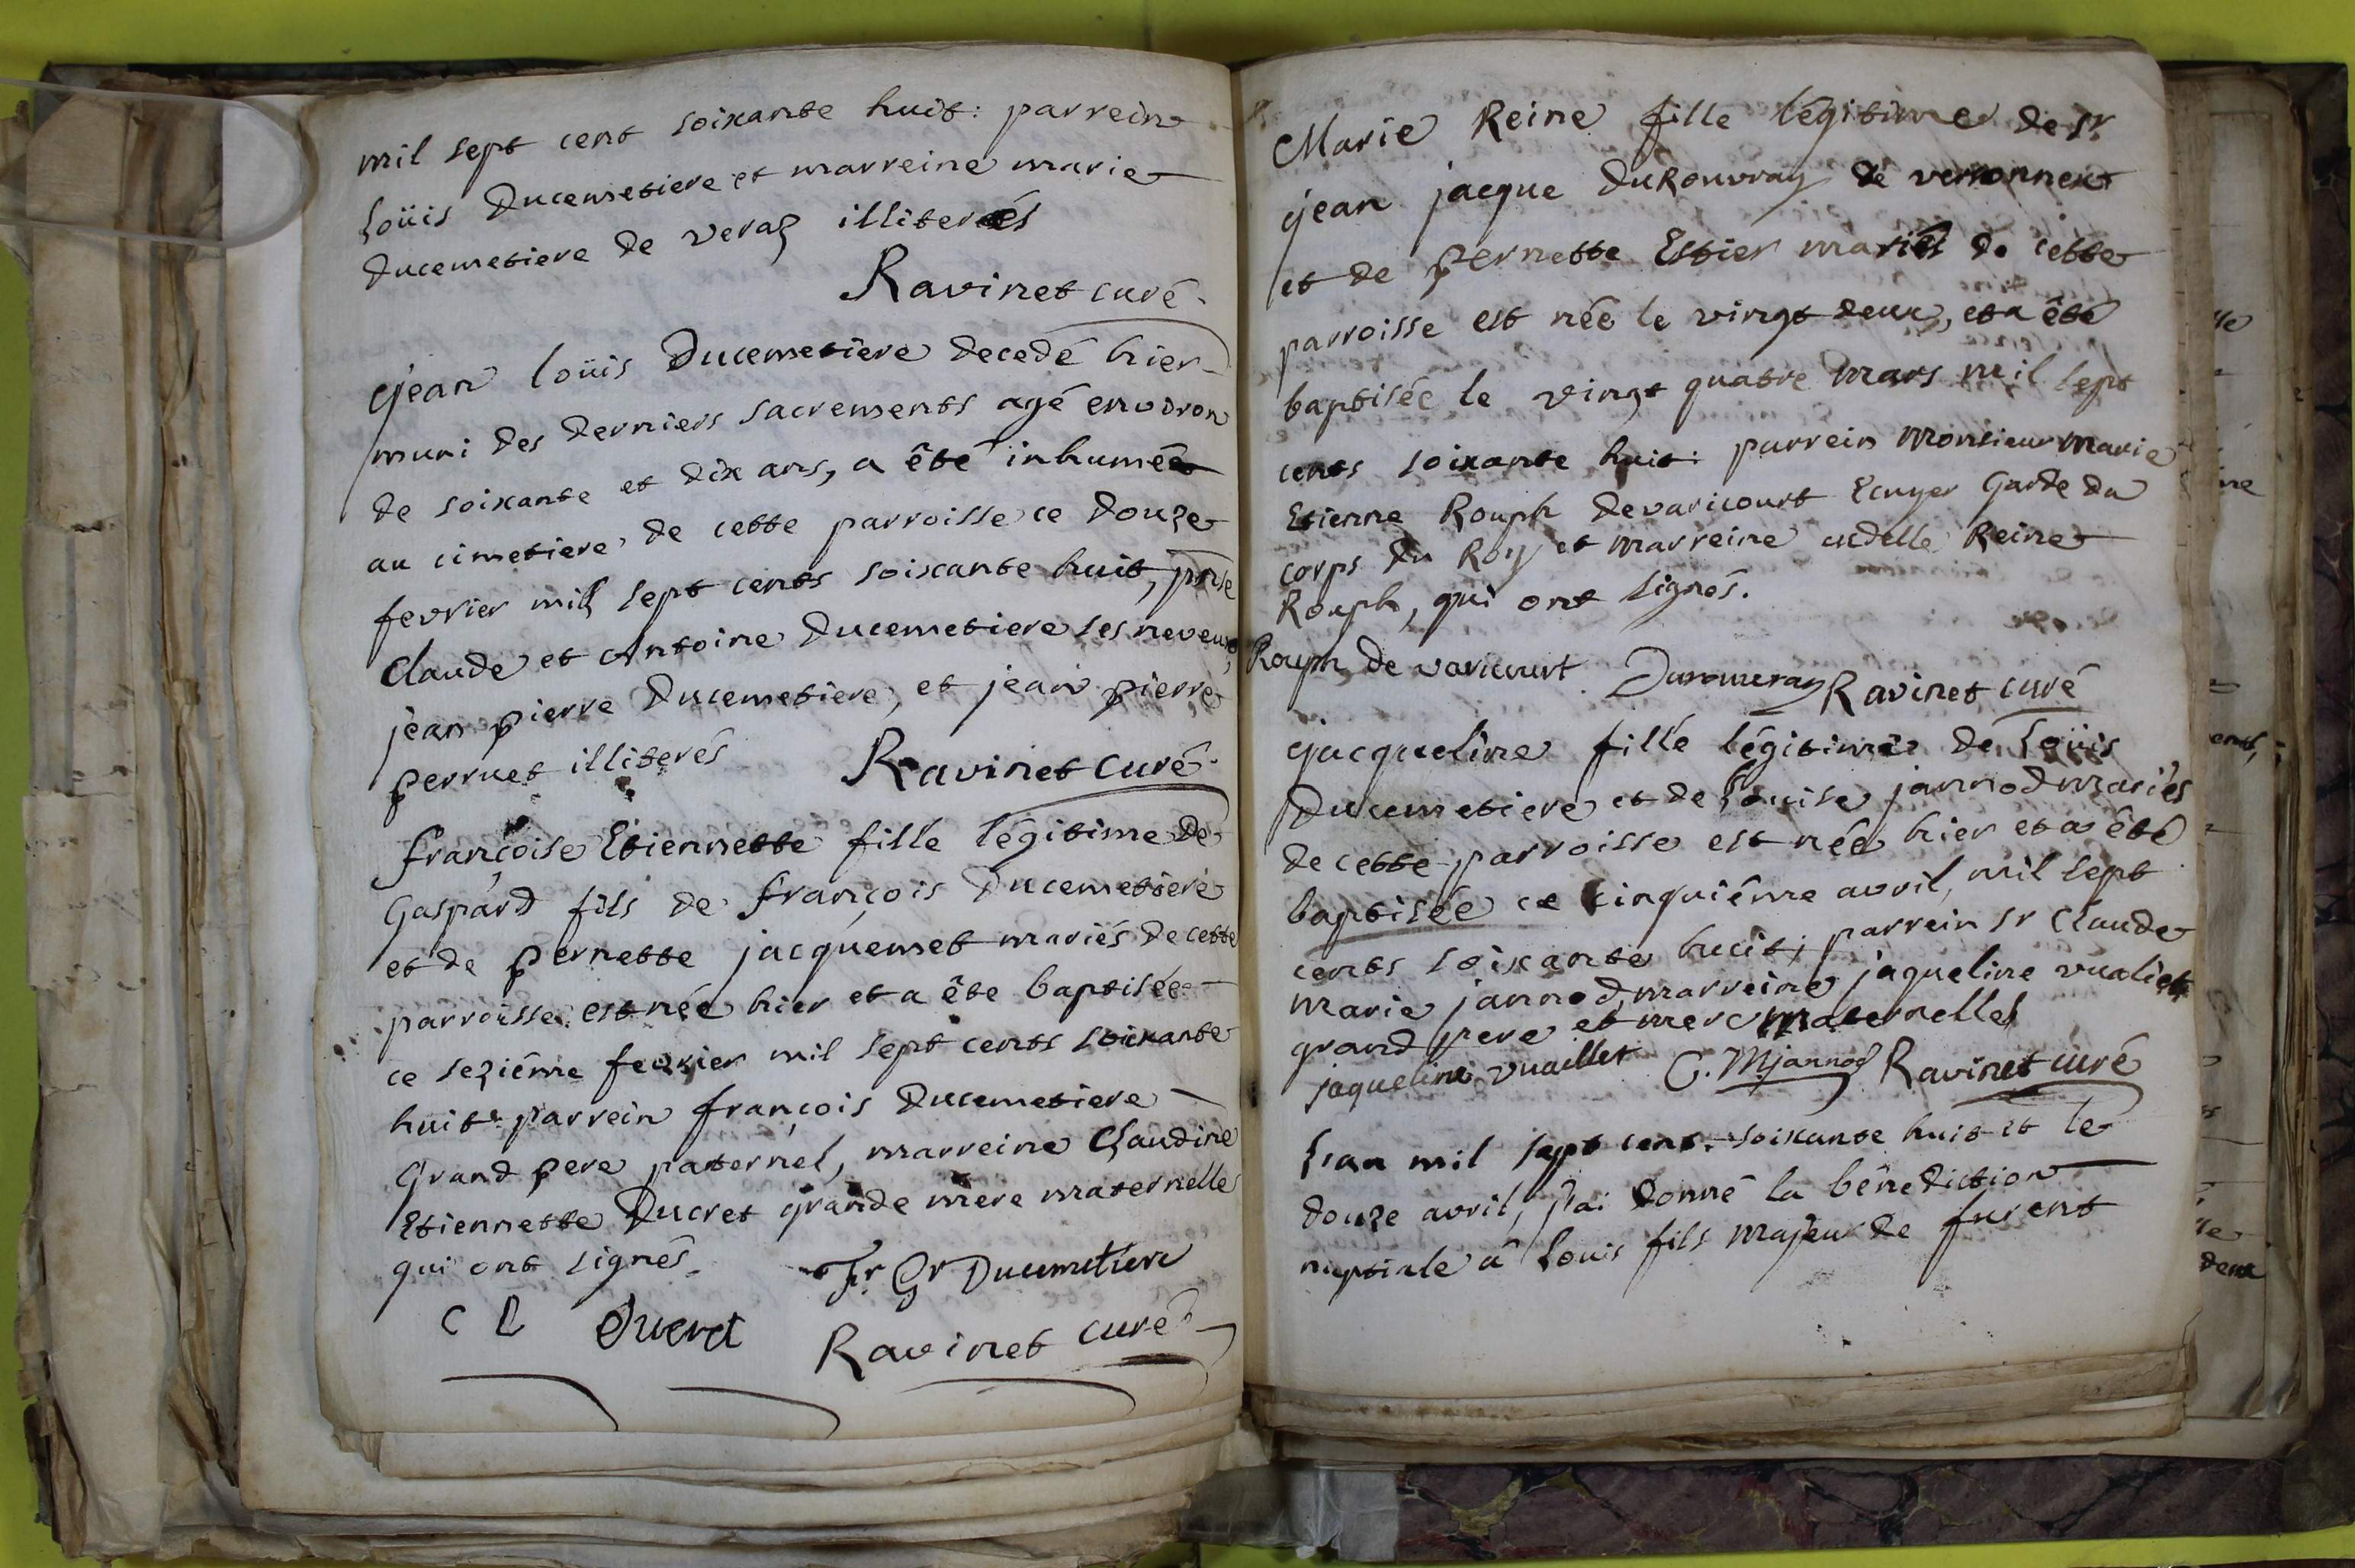 mil sept cent soixante huit: parrein
Loüis Ducemetiere et marreine marie
Ducemetiere de veraz illiterés
Ravinet curé.
jean loüis Ducemetiere decedé hier
muni des derniers sacrements agé environ
de soixante et dix ans, a été inhumé
au cimetiere de cette parroisse ce douze
fevrier mil sept cents soixante huit, pnse
Claude et Antoine Ducemetiere ses neveux,
jean pierre Ducemetiere, et jean pierre
perruet illiterés Ravinet curé.
françoise Etiennette fille légitime de
Gaspard fils de françois Ducemetiere
et de pernette jacquemet mariés de cette
parroisse est née hier et a éte baptisée
ce seziéme fevrier mil sept cents soixante
huit: parrein françois Ducemetiere
Grand pere paternel, marreine Claudine
Etiennette Ducret grande mere maternelle
qui ont signés. fr Gr Ducemetiere
C D Ducret Ravinet curé
Marie Reine fille légitime de sr
jean jacque DuRouvray de versonnex
et de pernette Estier mariés de cette
parroisse est née le vingt deux, et a été
baptisée le vingt quatre mars mil sept
cents soixante huit: parrein Monsieur Marie
Etienne Rouph devaricourt Ecuyer Garde du
corps du Roy et marreine Mdelle Reine
Rouph, qui ont signés.
Rouph de varicourt Durouvray Ravinet curé
jacqueline fille légitime de Loüis
Ducemetiere et de Louise jannod mariés
de cette parroisse est née hier et a été
baptisée ce cinquiéme avril, mil sept
cents soixante huit; parrein sr Claude
Marie jannod, marreine jaqueline vualiet
grand pere et mere maternelles
jaqueline vuaillet C. Mjannod Ravinet curé
L'an mil sept cent soixante huit et le
douze avril, j'ai donné la bénediction
nuptiale à Louis fils majeur de fu